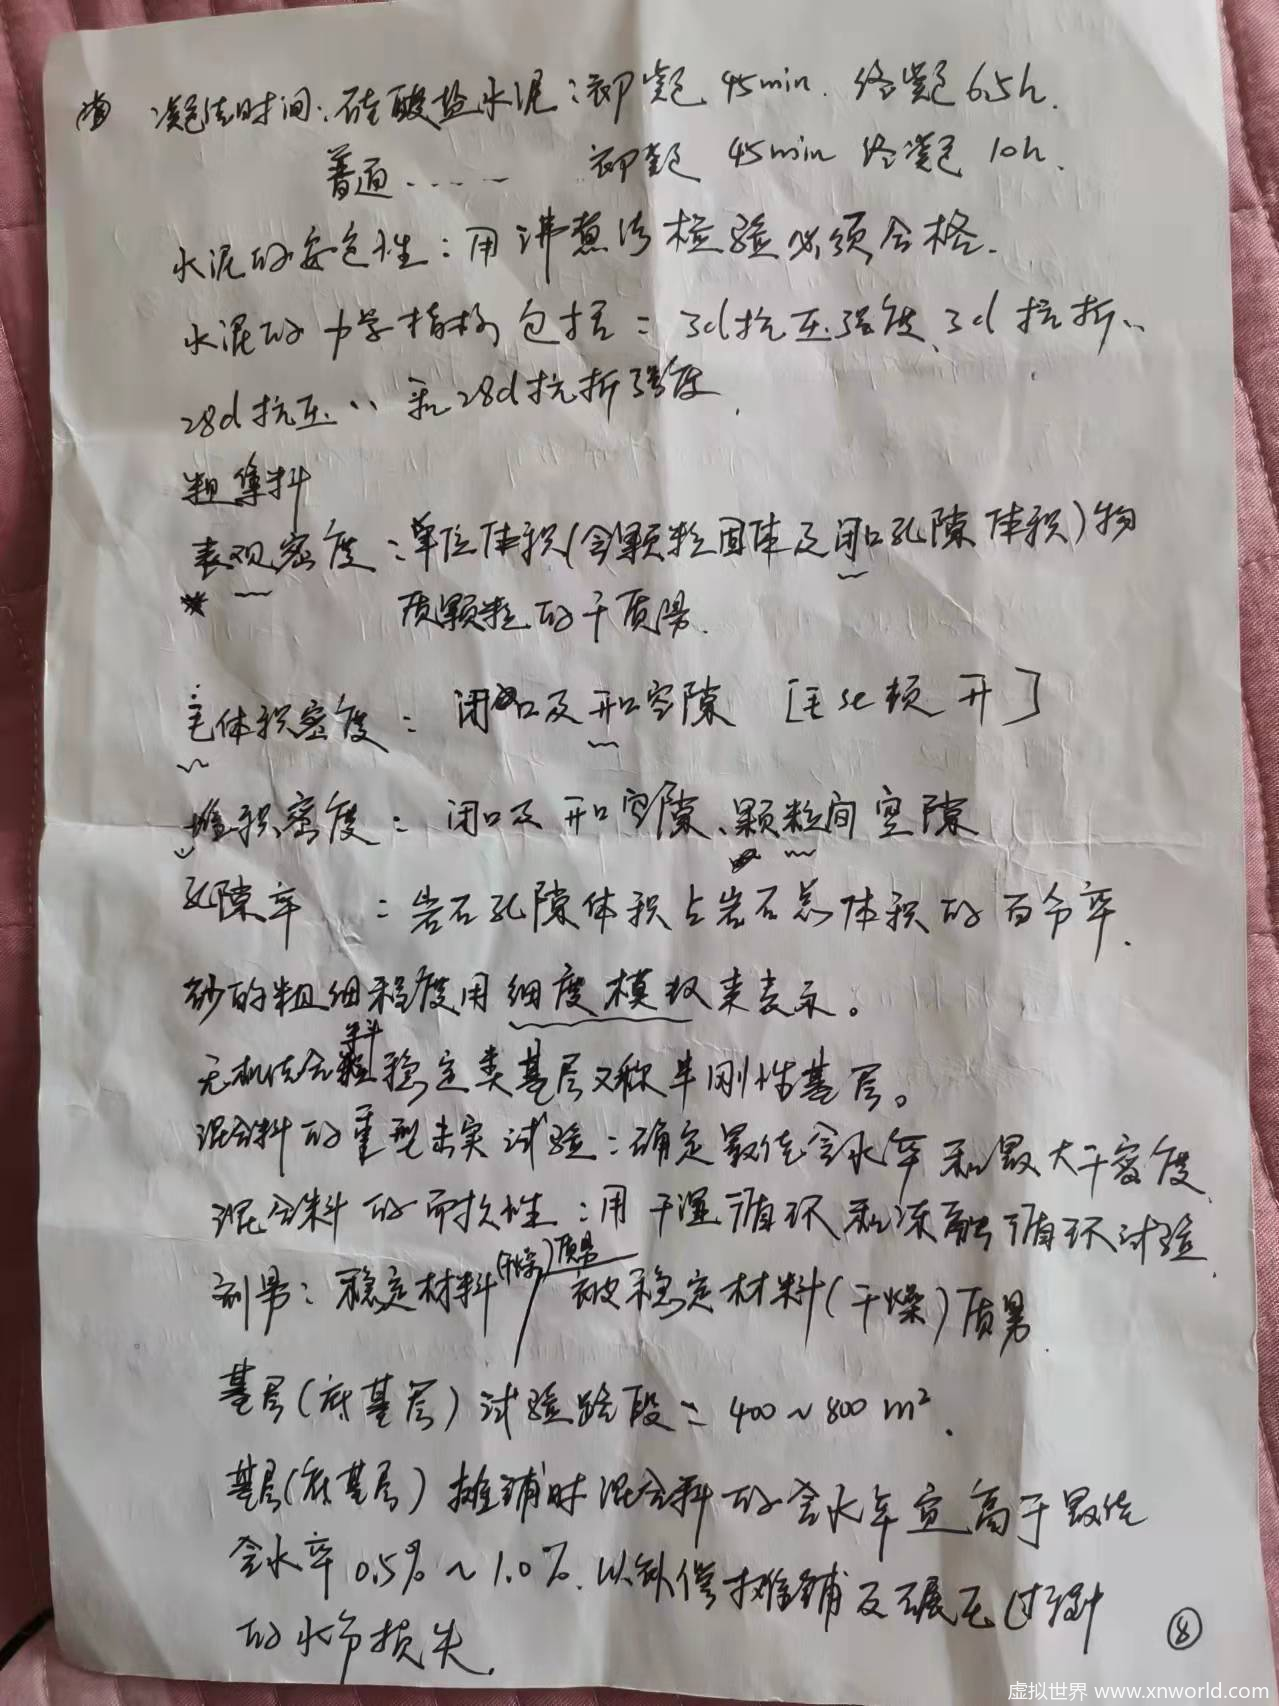 凝结时间:硅酸盐水泥:初凝 45min. 终凝 6.5h.
普通…… 初凝 45min 终凝 10h.
水泥的安定性:用沸煮法检验必须合格.
水泥的力学指标包括:3d抗压强度、3d抗折〃
28d抗压〃和28d抗折强度.
粗集料
表观密度:单位体积(含颗粒固体及闭口孔隙体积)物
质颗粒的干质量.
毛体积密度:闭口及开口空隙 [毛 顿 开]
堆积密度:闭口及开口空隙、颗粒间空隙
孔隙率 :岩石孔隙体积占岩石总体积的百分率.
砂的粗细程度用细度模数来表示。
无机结合料稳定类基层又称半刚性基层。
混合料的重型击实试验:确定最佳含水率和最大干密度.
混合料的耐久性:用干湿循环和冻融循环试验.
剂量:稳定材料(干燥)质量/被稳定材料(干燥)质量.
基层(底基层)试验路段:400~800m².
基层(底基层)摊铺时混合料的含水率宜高于最佳
含水率0.5%~1.0%.以补偿摊铺及碾压过程中
的水分损失.
⑧
虚拟世界 www.xnworld.com